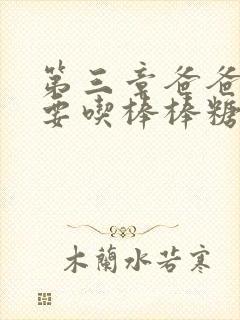 第三章爸爸
要喫棒棒糖
木蘭水若寒